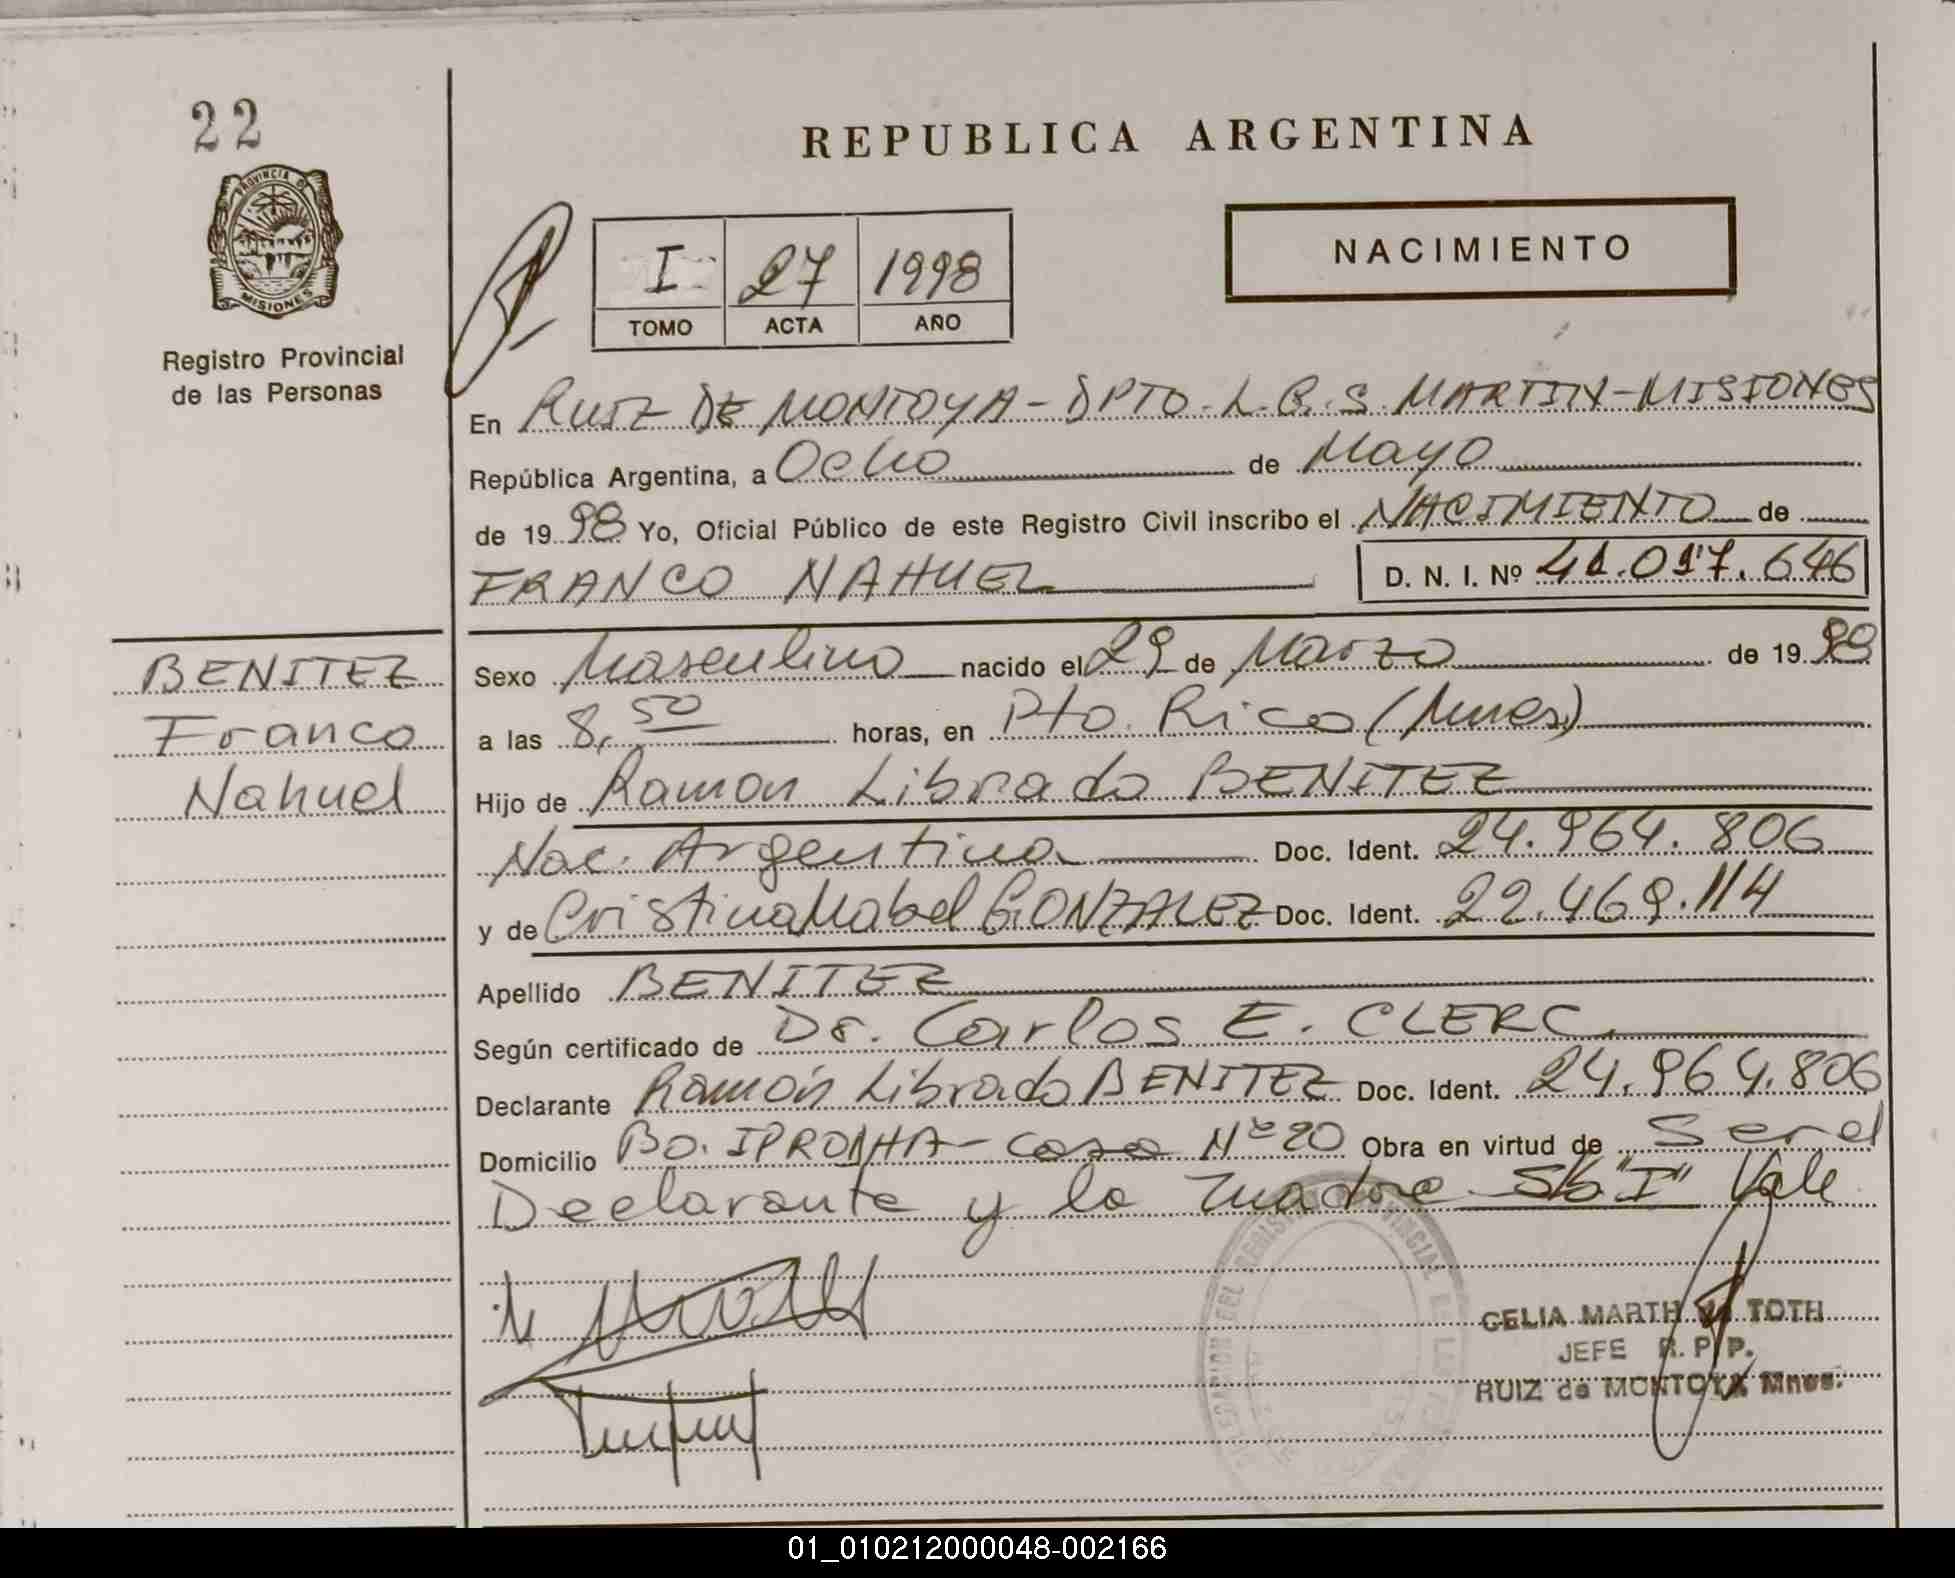 22
PROVINCIA DE
MISIONES
Registro Provincial
de las Personas
REPUBLICA ARGENTINA
NACIMIENTO
I 27 1998
TOMO ACTA AÑO
En RUIZ DE MONTOYA - DPTO. L.G.S. MARTIN - MISIONES
República Argentina, a Ocho de Mayo
de 1998 Yo, Oficial Público de este Registro Civil inscribo el NACIMIENTO de
FRANCO NAHUEL D. N. I. Nº 41.017.646
BENITEZ
Franco
Nahuel
Sexo Masculino nacido el 29 de Marzo de 1998
a las 8,50 horas, en Pto. Rico (Mnes)
Hijo de Ramon Librado BENITEZ
Nac. Argentina Doc. Ident. 24.964.806
y de Cristina Mabel GONZALEZ Doc. Ident. 22.469.114
Apellido BENITEZ
Según certificado de Dr. Carlos E. CLERC.
Declarante Ramón Librado BENITEZ Doc. Ident. 24.964.806
Domicilio Bo. IPRODHA - Casa Nº 20 Obra en virtud de Ser el
Declarante y la madre S/b "I" Vale
CELIA MARTH TOTH
JEFE R. P. P.
RUIZ de MONTOYA Mnes.
01_010212000048-002166